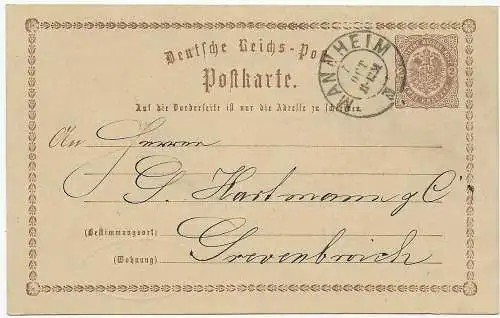 Deutsche Reichs-Post
Postkarte.
MANNHEIM
7
OCT
Auf die Vorderseite ist nur die Adresse zu schreiben.
An Herren
G. Hartmann & C
(Bestimmungsort)
Grevenbroich
(Wohnung)